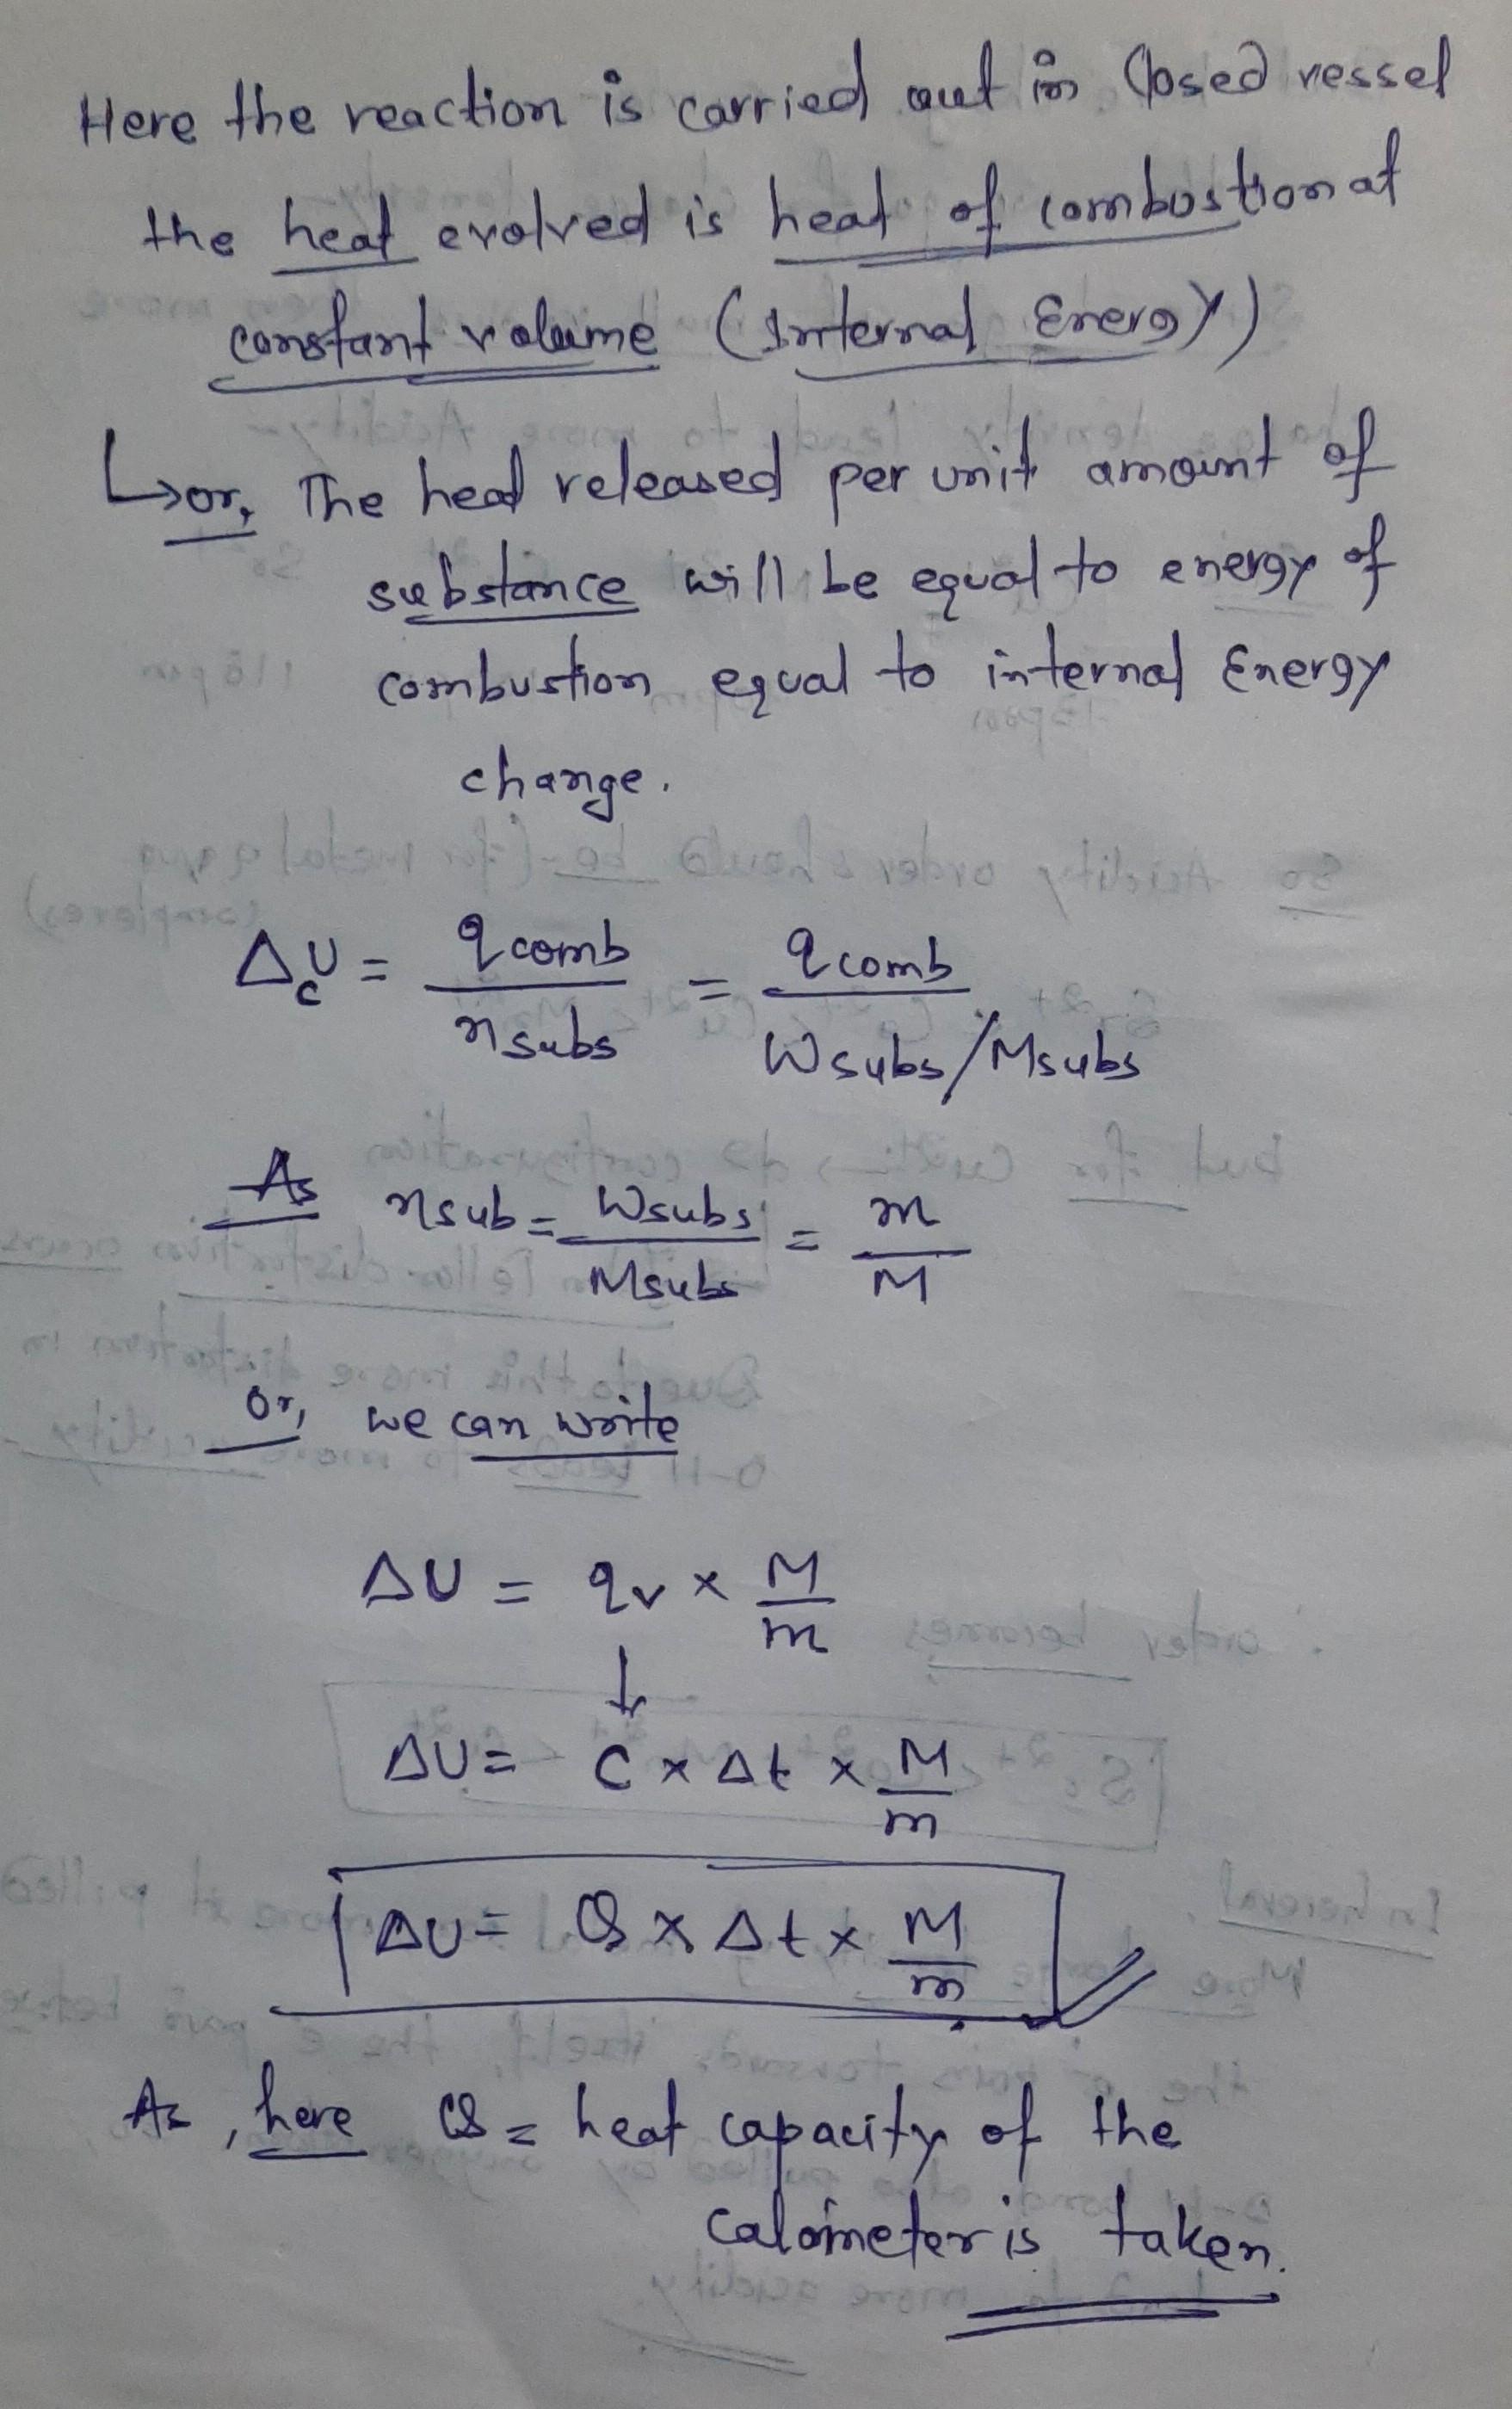 Here the reaction is carried out in Closed vessel
the heat evolved is heat of combustion at
constant volume (Internal Energy)
↳ or, The heat released per unit amount of
substance will be equal to energy of
combustion equal to internal Energy
change.
Δ_cU = q_comb / n_subs = q_comb / (W_subs/M_subs)
As n_sub = W_subs / M_subs = m / M
or, we can write
ΔU = q_v × M/m
↓
ΔU = C × Δt × M/m
ΔU = Q × Δt × M/m
As, here Q = heat capacity of the
calorimeter is taken.